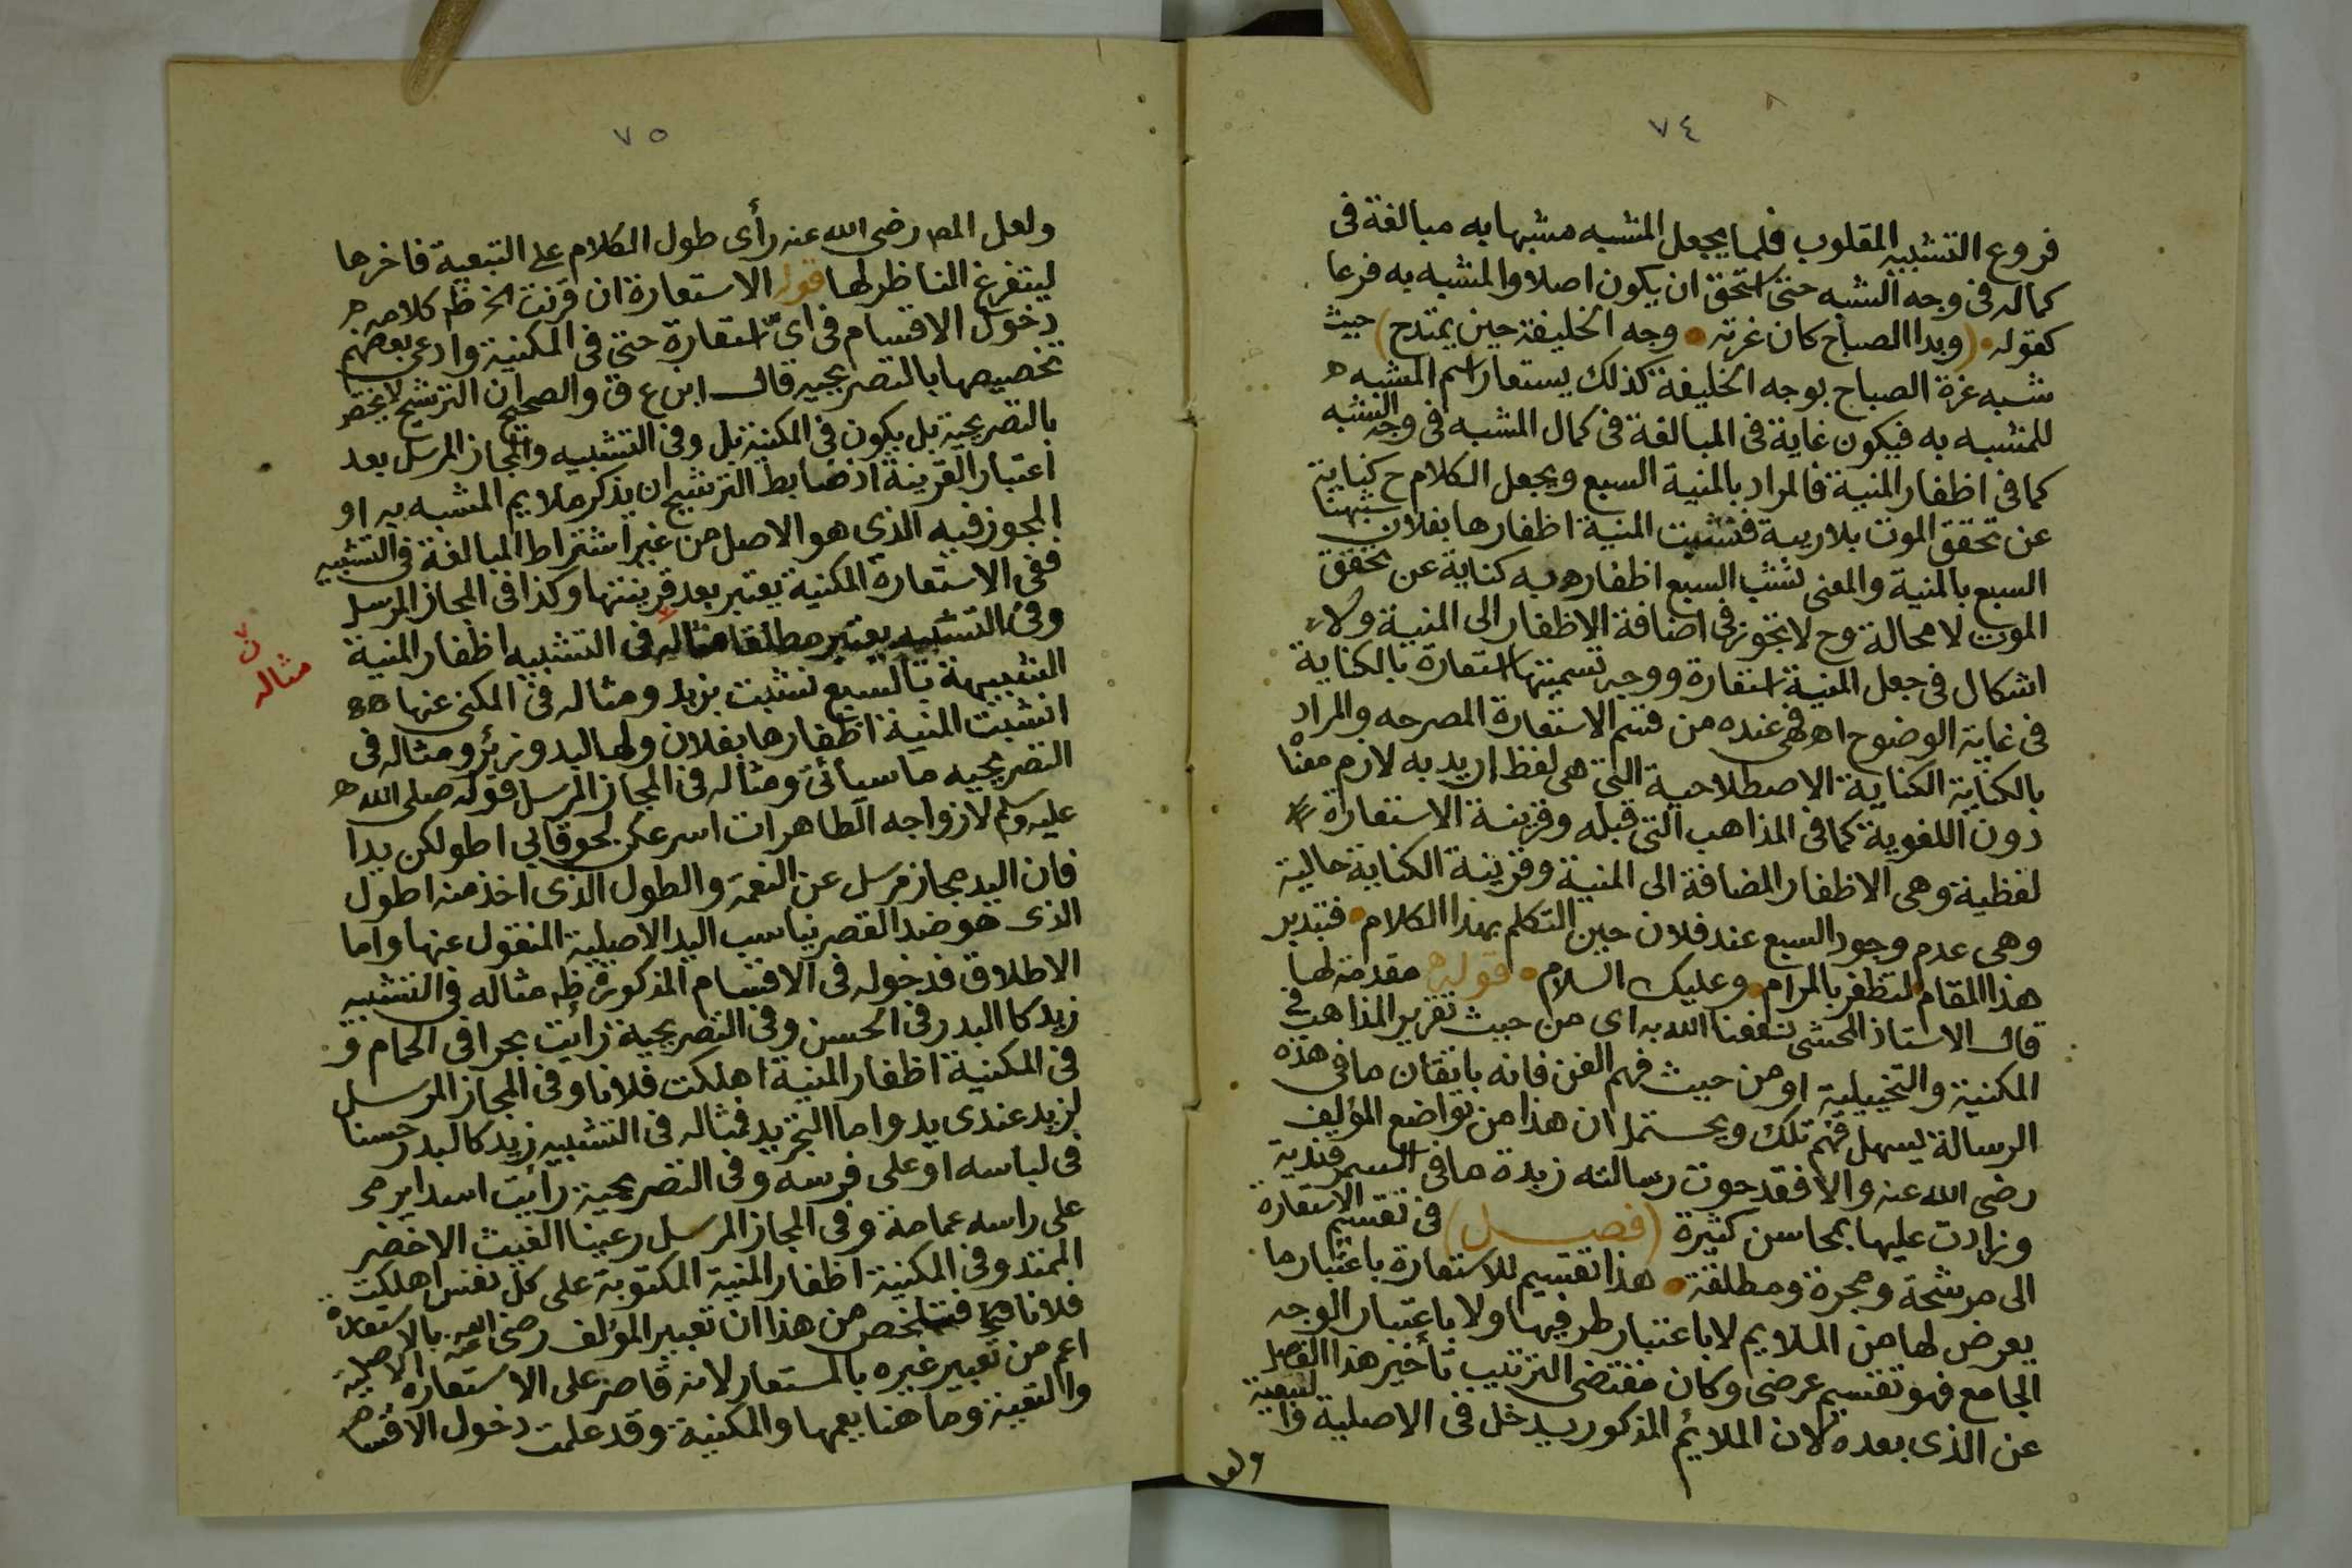 ٧٤
فروع التشبيه المقلوب فلما يجعل المشبه مشبها به مبالغة فى
كماله فى وجه الشبه حتى استحق ان يكون اصلا والمشبه به فرعا
كقوله (وبدا الصباح كان غرته وجه الخليفة حين يمتدح) حيث
شبه غرة الصباح بوجه الخليفة كذلك يستعار اسم المشبه
للمشبه به فيكون غاية فى المبالغة فى كمال المشبه فى وجه الشبه
كما فى اظفار المنية فالمراد بالمنية السبع ويجعل الكلام ح كناية
عن تحقق الموت بلا ريبة فنشبت المنية اظفارها بفلان شبهنا
السبع بالمنية والمعنى نشب السبع اظفاره به كناية عن تحقق
الموت لا محالة وح لا تجوز فى اضافة الاظفار الى المنية ولا
اشكال فى جعل المنية استعارة ووجه تسميتها استعارة بالكناية
فى غاية الوضوح اه فهى عنده من قسم الاستعارة المصرحه والمراد
بالكناية الكناية الاصطلاحية التى هى لفظ اريد به لازم معناه
دون اللغوية كما فى المذاهب التى قبله وقرينة الاستعارة
لفظية وهى الاظفار المضافة الى المنية وقرينة الكناية حالية
وهى عدم وجود السبع عند فلان حين التكلم بهذا الكلام فتدبر
هذا المقام لتظفر بالمرام وعليك السلام قوله مقدمة لها
قال الاستاذ المحشى نفعنا الله به اى من حيث تقرير المذاهب فى
المكنية والتخييلية او من حيث فهم الفن فانه باتقان ما فى هذه
الرسالة يسهل فهم تلك ويحتمل ان هذا من تواضع المؤلف
رضى الله عنه والا فقد حوت رسالته زبدة ما فى السمرقندية
وزادت عليها بمحاسن كثيرة (فصل) فى تقسيم الاستعارة
الى مرشحة ومجردة ومطلقة هذا تقسيم للاستعارة باعتبار ما
يعرض لها من الملايم لا باعتبار طرفيها ولا باعتبار الوجه
الجامع فهو تقسيم عرضى وكان مقتضى الترتيب تأخير هذا الفصل
عن الذى بعده لان الملائم المذكور يدخل فى الاصلية والتبعية
ولعل
٧٥
ولعل المص رضى الله عنه رأى طول الكلام على التبعية فاخرها
ليتفرغ الناظر لها قوله الاستعارة ان قرنت الخ ظه كلامه
دخول الاقسام فى اىّ استعارة حتى فى المكنية وادعى بعضهم
تخصيصها بالتصريحيه قال ابن ع ق والصحيح ان الترشيح لا يختص
بالتصريحية بل يكون فى المكنية بل وفى التشبيه والمجاز المرسل بعد
اعتبار القرينة اذ ضابط الترشيح ان يذكر ملايم المشبه به او
المجوز فيه الذى هو الاصل من غير اشتراط المبالغة فى التشبيه
ففى الاستعارة المكنية يعتبر بعد قرينتها وكذا فى المجاز المرسل
وفى التشبيه يعتبر مطلقا مثاله فى التشبيه اظفار المنية
ن مثاله
الشبيهة بالسبع نشبت بزيد ومثاله فى المكنى عنها
انشبت المنية اظفارها بفلان ولها لبد وزئر ومثاله فى
التصريحيه ما سيأتى ومثاله فى المجاز المرسل قوله صلى الله
عليه وسلم لازواجه الطاهرات اسرعكن لحوقا بى اطولكن يدا
فان اليد مجاز مرسل عن النعمة والطول الذى اخذ منه اطول
الذى هو ضد القصر يناسب اليد الاصلية المنقول عنها واما
الاطلاق فدخوله فى الاقسام المذكورة ظه مثاله فى التشبيه
زيد كالبدر فى الحسن وفى التصريحية رأيت بحرا فى الحمام و
فى المكنية اظفار المنية اهلكت فلانا وفى المجاز المرسل
لزيد عندى يد واما التجريد فمثاله فى التشبيه زيد كالبدر حسنا
فى لباسه او على فرسه وفى التصريحية رأيت اسدا يرمى
على راسه عمامة وفى المجاز المرسل رعينا الغيث الاخضر
الممتد وفى المكنية اظفار المنية المكتوبة على كل نفس اهلكت
فلانا فتلخص من هذا ان تعبير المؤلف رضى الله عنه بالاستعارة
اعم من تعبير غيره بالمستعار لانه قاصر على الاستعارة الاصلية
والتعبية وما هنا يعمها والمكنية وقد علمت دخول الاقسام